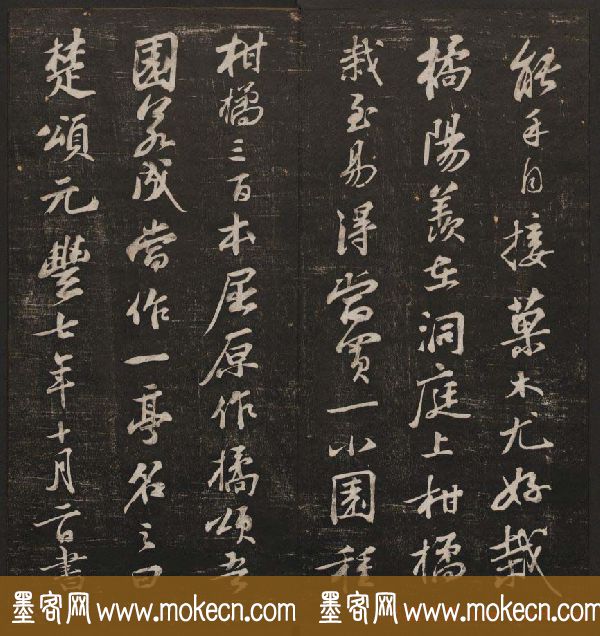 能手自接菓木尤好栽
橘陽羨在洞庭上柑橘
栽至易得當買一小園種
柑橘三百本屈原作橘頌吾
園若成當作一亭名之曰
楚頌元豐七年十月二日書
墨客网 www.mokecn.com 墨客网 www.mokecn.com